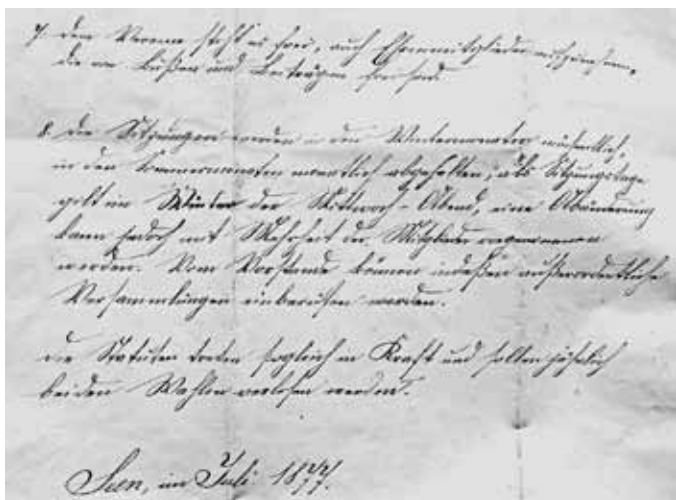 7. Dem Vereine steht es frei, auch Ehrenmitglieder aufzunehmen,
die von Bußen und Beiträgen frei sind.
8. Die Sitzungen werden in den Wintermonaten wöchentlich,
in den Sommermonaten monatlich abgehalten; als Sitzungstage
gilt im Winter der Mittwoch-Abend, eine Abänderung
kann jedoch mit Mehrheit der Mitglieder vorgenommen
werden. Vom Vorstande können indeßen außerordentliche
Versammlungen einberufen werden.
Die Statuten treten sogleich in Kraft und sollen jährlich
bei den Wahlen verlesen werden.
im Juli 1877.